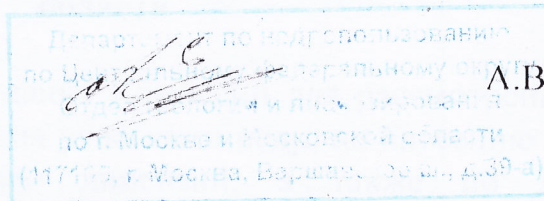 Департамент по недропользованию
по Центральному федеральному округу
Отдел геологии и лицензирования
по г. Москве и Московской области
(117105, г. Москва, Варшавское ш., д.39-а)
А.В